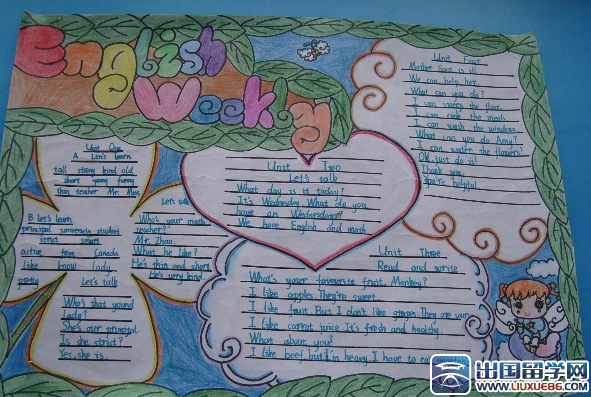 English
Weekly
Unit One
A Let's learn
tall strong kind old
short young funny
thin teacher Mr. Miss
B let's learn
principal university student
strict smart
active from Canada
like know lady
pretty Let's talk
Let's talk
Who's your math
teacher?
Mr. Zhao.
What he like?
He's thin and short.
He's very kind.
Who's that young
Lady?
She's our principal.
Is she strict?
Yes, she is.
Unit Two
Let's talk
What day is it today?
It's Wednesday. What do you
have on Wednesdays?
We have English and math
Unit Three
Read and write
What's your favourite fruit, Monkey?
I like apples. They're sweet.
I like fruit. But I don't like grapes. They are sour.
I like carrot juice. It's fresh and healthy.
What about you?
I like beef, but I'm heavy. I have to
Unit Four
Mother Goat is ill.
We can help her.
What can you do?
I can sweep the floor.
I can cook the meals
I can wash the windows.
What can you do Amy?
I can water the flowers!
Ok, just do is!
Thank you.
You're helpful
出国留学网
www.liuxue86.com